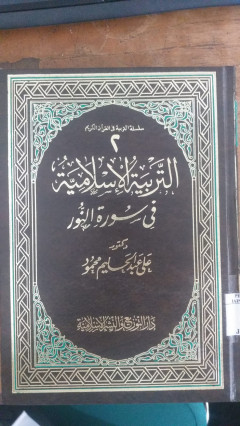 سلسلة التربية في القرآن الكريم
٢
التربية الإسلامية
في سورة النور
دكتور
علي عبد الحليم محمود
دار التوزيع والنشر الإسلامية